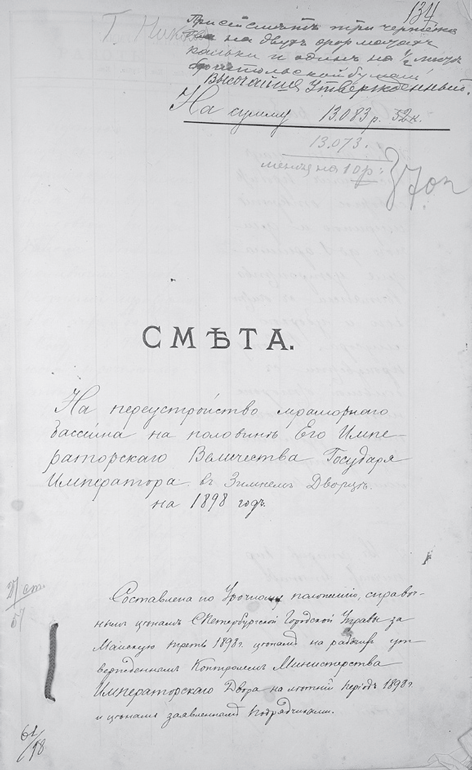 134
При сей смѣтѣ три чертежа
на двухъ форматахъ
кальки и одинъ на ½ листѣ
бристольской бумаги
Высочайше Утвержденный.
На сумму 13.083 р. 52 к.
13.073.
менѣе на 10 р.
СМѢТА.
На переустройство мраморнаго
бассейна на половинѣ Его Импе-
раторскаго Величества Государя
Императора въ Зимнемъ Дворцѣ.
на 1898 годъ.
27 ст.
57
Составлена по Урочному положенію, справоч-
нымъ цѣнамъ СПетербургской Городской Управы за
Майскую треть 1898 г. цѣнамъ на рабочихъ ут-
вержденнымъ Контролемъ Министерства
Императорскаго Двора на лѣтній періодъ 1898 г.
и цѣнамъ заявленнымъ подрядчиками.
61/98